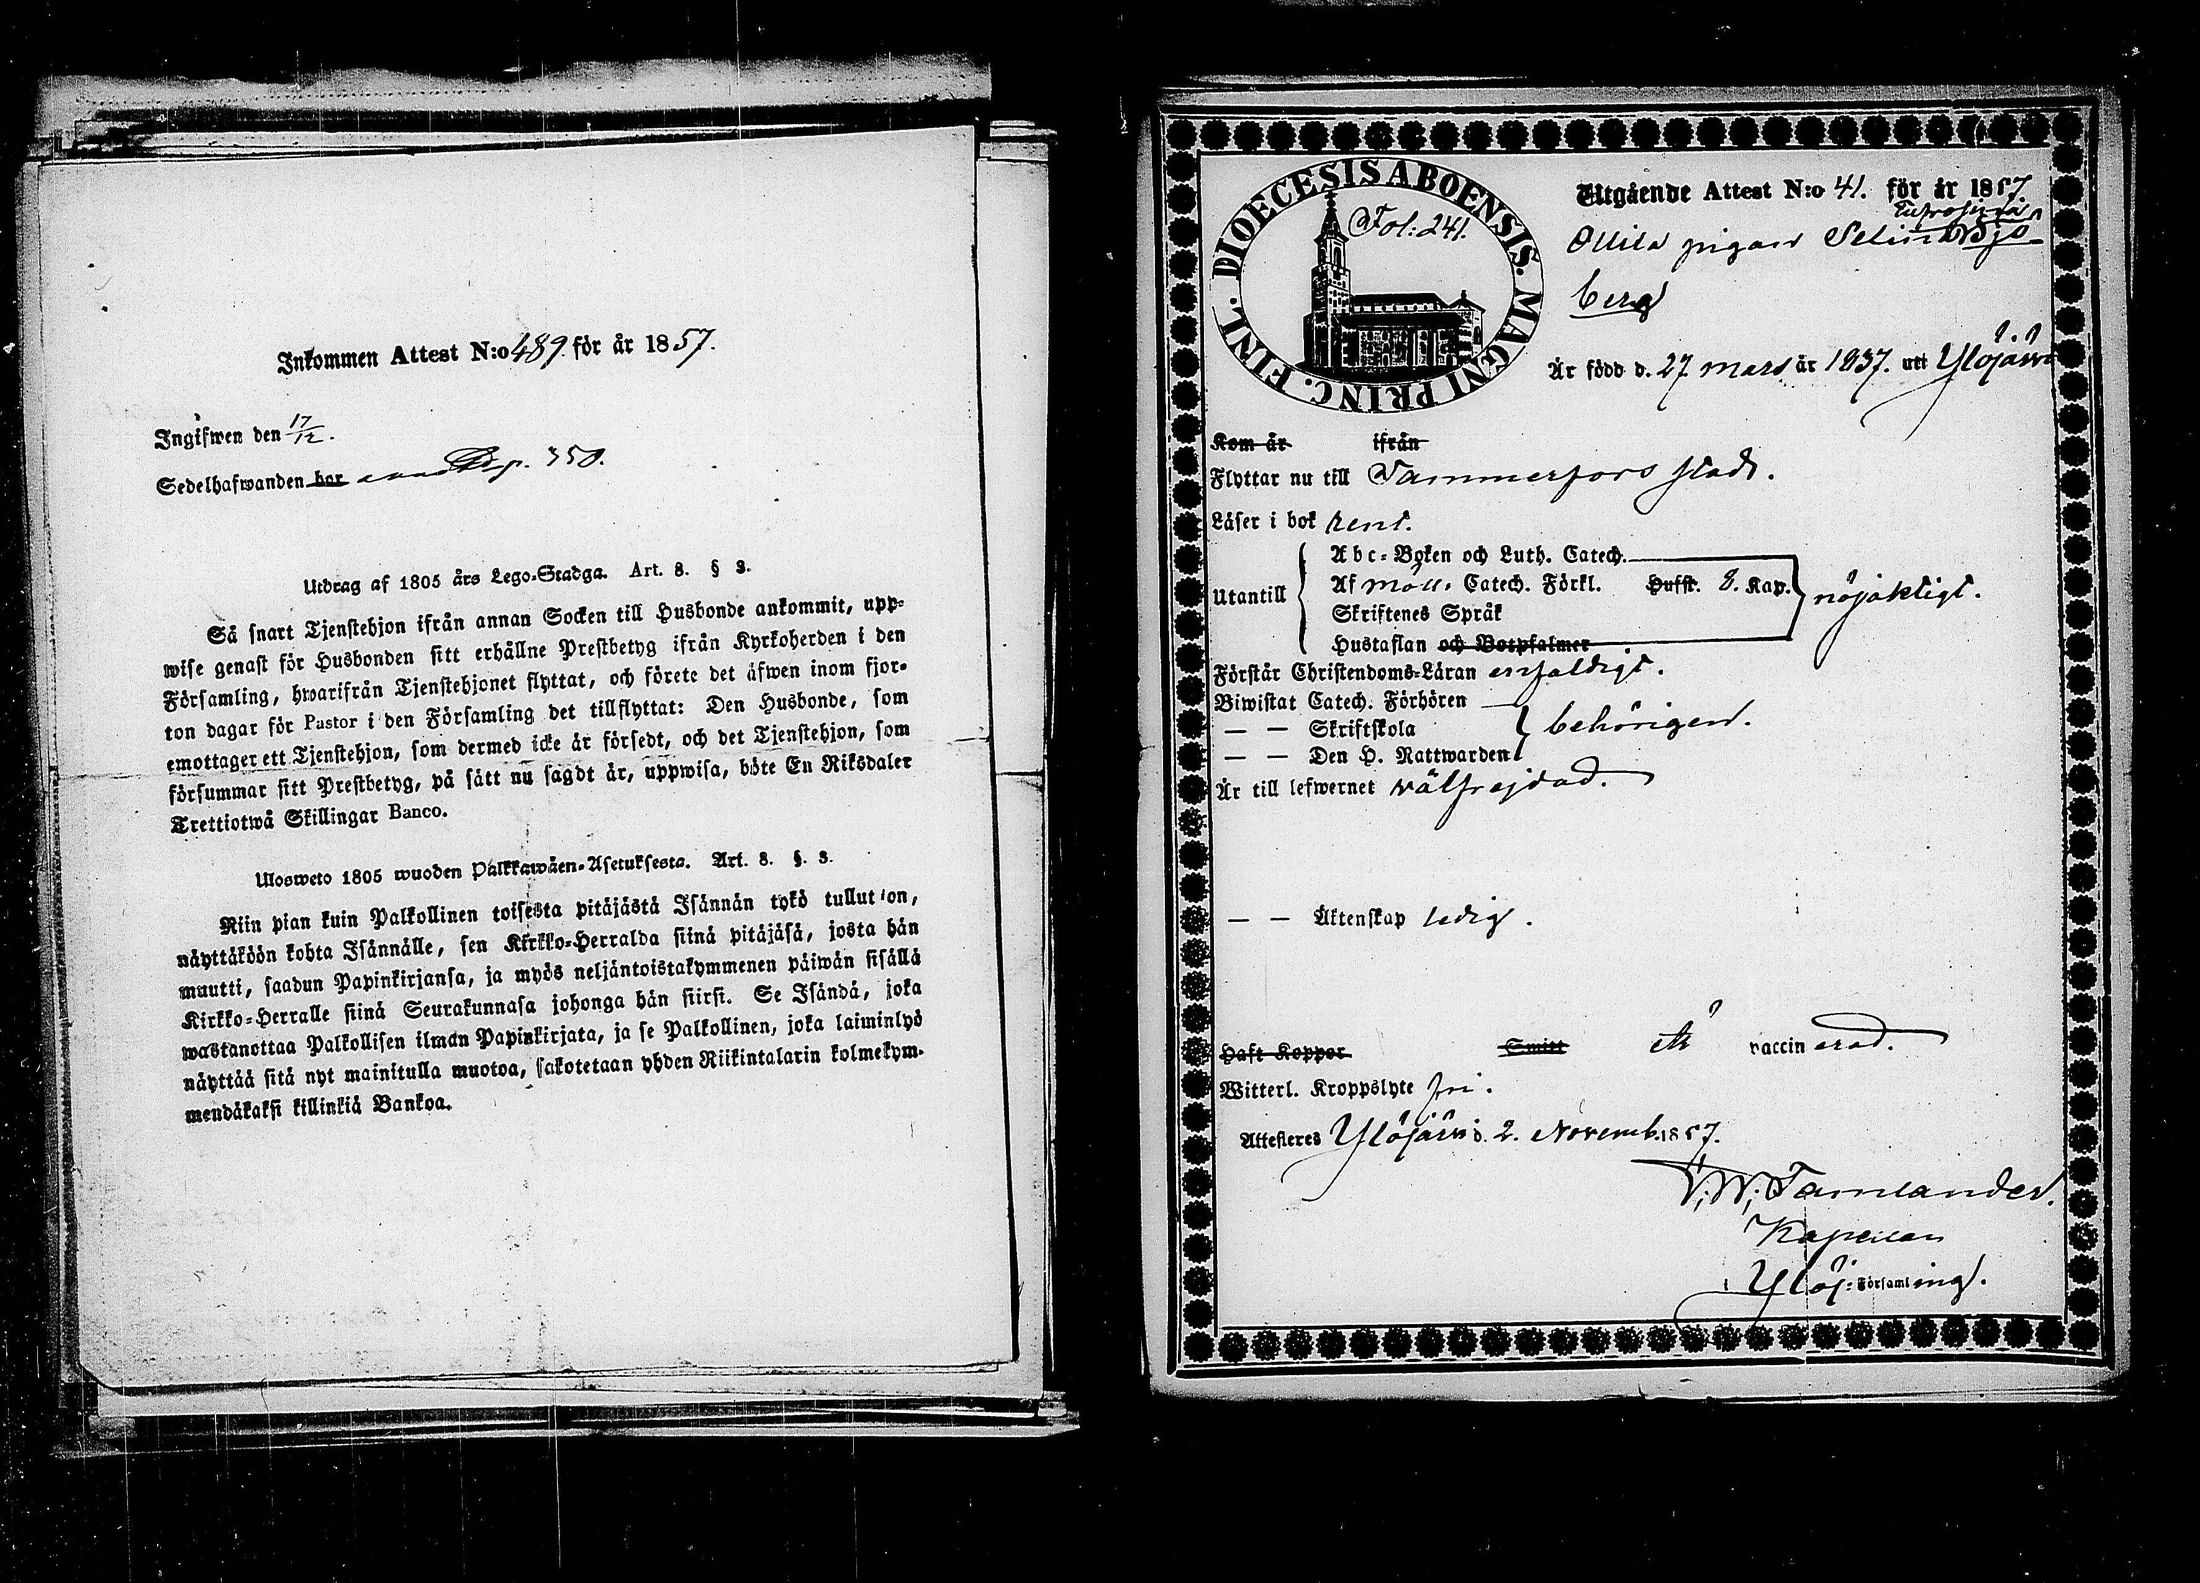 Inkommen Attest N:o 489. för år 1857.
Ingifwen den 17/12.
Sedelhafwanden har p. 350.
Utdrag af 1805 års Lego-Stadga. Art. 8. § 3.
Så snart Tjenstehjon ifrån annan Socken till Husbonde ankommit, upp-
wise genast för Husbonden sitt erhållne Prestbetyg ifrån Kyrkoherden i den
Församling, hwarifrån Tjenstehjonet flyttat, och förete det äfwen inom fjor-
ton dagar för Pastor i den Församling det tillflyttat: Den Husbonde, som
emottager ett Tjenstehjon, som dermed icke är försedt, och det Tjenstehjon, som
försummar sitt Prestbetyg, på sätt nu sagdt är, uppwisa, böte En Riksdaler
Trettiotwå Skillingar Banco.
Ulosweto 1805 wuoden Palkkawäen-Asetuksesta. Art. 8. §. 3.
Niin pian kuin Palkollinen toisesta pitäjästä Isännän tykö tullut on,
näyttäköön kohta Isännälle, sen Kirkko-Herralda siinä pitäjäsä, josta hän
muutti, saadun Papinkirjansa, ja myös neljäntoistakymmenen päiwän sisällä
Kirkko-Herralle siinä Seurakunnasa johonga hän siirsi. Se Isändä, joka
wastanottaa Palkollisen ilman Papinkirjata, ja se Palkollinen, joka laiminlyö
näyttää sitä nyt mainitulla muotoa, sakotetaan yhden Riikintalarin kolmekym-
mendäkaksi killinkiä Bankoa.
DIOECESIS ABOENSIS. MAGNI PRINC. FINL.
Fol: 241.
Utgående Attest N:o 41. för år 1857
Eufrosina
pigan Selina Bjö-
berg
Är född d. 27 mars år 1837. uti Ylöjärvi
Kom år ifrån
Flyttar nu till Tammerfors stad.
Läser i bok rent.
Utantill
Abc-Boken och Luth. Catech.
Af Möll. Catech. Förkl. Hufst. 8. Kap.
Skriftenes Språk
Hustaflan och Botpsalmer
nöjaktigt.
Förstår Christendoms-Läran enfaldigt.
Biwistat Catech. Förhören
— — Skriftskola
— — Den H. Nattwarden
behörigen.
Är till lefwernet välfrejdad.
— — Äktenskap ledig.
Haft Koppor Smitt är vaccinerad.
Witterl. Kroppslyte fri.
Attesteres Ylöjärvi d. 2. Novemb. 1857.
V. W. Tamlander.
Kapellan
i Ylöj: Församling.